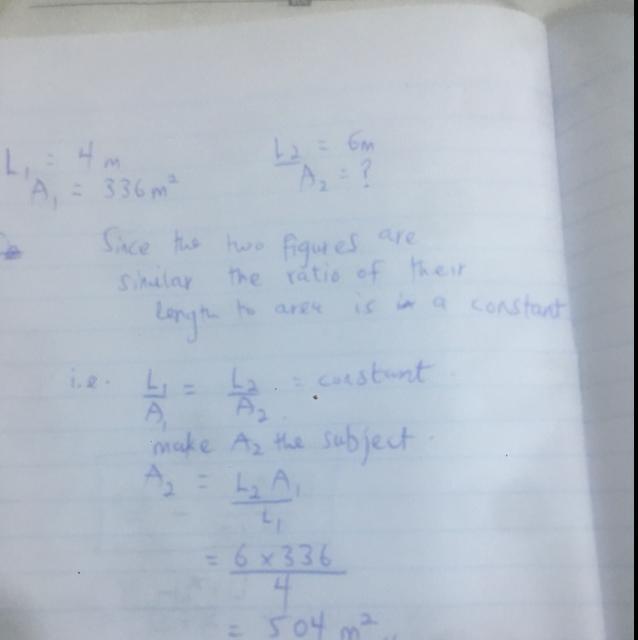 L₁ = 4 m L₂ = 6m
A₁ = 336 m² A₂ = ?
Since the two figures are
similar the ratio of their
length to area is a constant
i.e. L₁/A₁ = L₂/A₂ = constant.
make A₂ the subject.
A₂ = L₂ A₁/L₁
= 6 x 336/4
= 504 m²